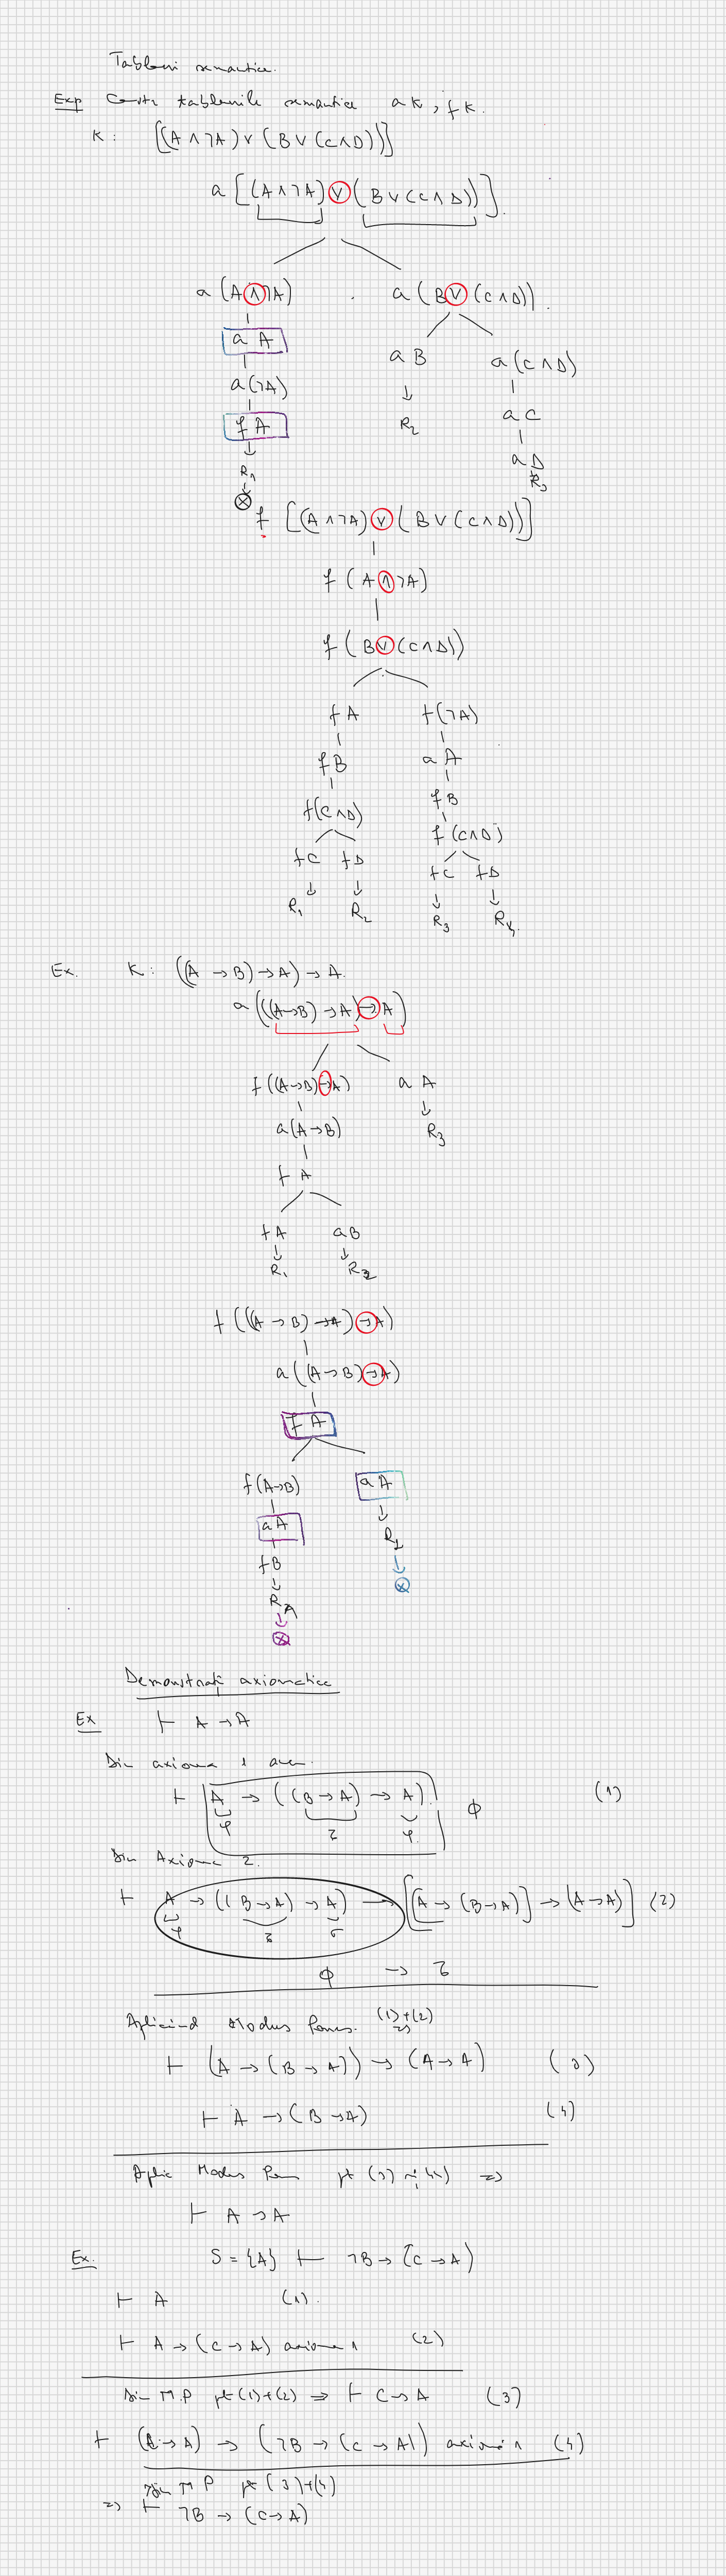 Tablouri semantice.
Exp Constr tablourile semantice aK, fK.
K: [(A ∧ ¬A) ∨ (B ∨ (C ∧ D))]
a [(A ∧ ¬A) ∨ (B ∨ (C ∧ D))].
a (A ∧ ¬A) a (B ∨ (C ∧ D)).
a A
a B a (C ∧ D)
a (¬A)
a C
f A
R2
a D
R1 R3
⊗
f [(A ∧ ¬A) ∨ (B ∨ (C ∧ D))]
f (A ∧ ¬A)
f (B ∨ (C ∧ D))
f A f (¬A)
f B a A
f B
f (C ∧ D) f (C ∧ D)
f C f D f C f D
R1 R2 R3 R4.
Ex. K: ((A → B) → A) → A.
a (((A → B) → A) → A)
f ((A → B) → A) a A
a (A → B) R3
f A
f A a B
R1 R2
f (((A → B) → A) → A)
a ((A → B) → A)
f A
f (A → B) a A
a A
R1
f B
⊗
R2
⊗
Demonstrații axiomatice
Ex ⊢ A → A
Din axioma 1 avem.
⊢ A → ((B → A) → A). ϕ (1)
φ ζ φ
Din Axioma 2.
⊢ A → ((B → A) → A) → [[A → (B → A)] → (A → A)] (2)
φ ζ σ
ϕ → ζ
Aplicând Modus Ponens. (1)+(2) ⇒
⊢ (A → (B → A)) → (A → A) (3)
⊢ A → (B → A) (4)
Aplic Modus Pon pt (3) și (4) ⇒
⊢ A → A
Ex. S = {A} ⊢ ¬B → (C → A)
⊢ A (1).
⊢ A → (C → A) axioma 1 (2)
Din M.P pt (1)+(2) ⇒ ⊢ C → A (3)
⊢ (C → A) → (¬B → (C → A)) axioma 1 (4)
Din M P pt (3)+(4)
⇒ ⊢ ¬B → (C → A)